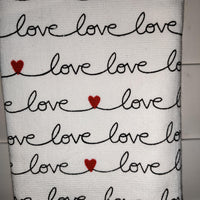 love love love
love love
love love love
love love
love love love
love love
love love love